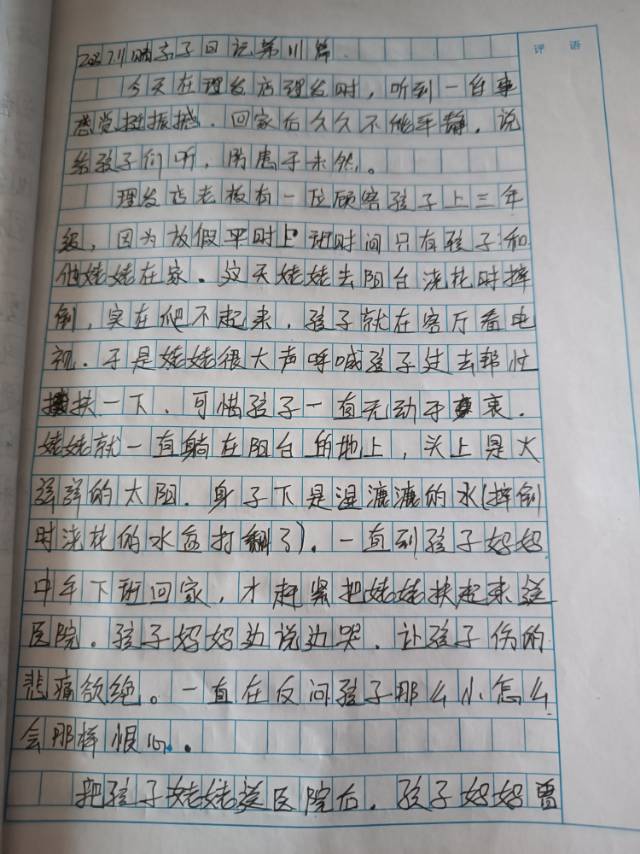 评 语
2022.7.11晴亲子日记第11篇.
今天在理发店理发时，听到一台事
感觉挺振撼.回家后久久不能平静.说
给孩子们听，防患于未然。
理发店老板有一位顾客孩子上三年
级，因为放假平时上班时间只有孩子和
他姥姥在家.这天姥姥去阳台浇花时摔
倒，实在爬不起来.孩子就在客厅看电
视.于是姥姥很大声呼喊孩子过去帮忙
扶一下.可惜孩子一直无动于衷.
姥姥就一直躺在阳台的地上，头上是火
辣辣的太阳.身子下是湿漉漉的水(摔倒
时浇花的水盆打翻了).一直到孩子妈妈
中午下班回家，才赶紧把姥姥扶起来送
医院.孩子妈妈边说边哭.让孩子伤的
悲痛欲绝。一直在反问孩子那么小怎么
会那样恨心.
把孩子姥姥送医院后.孩子妈妈曾